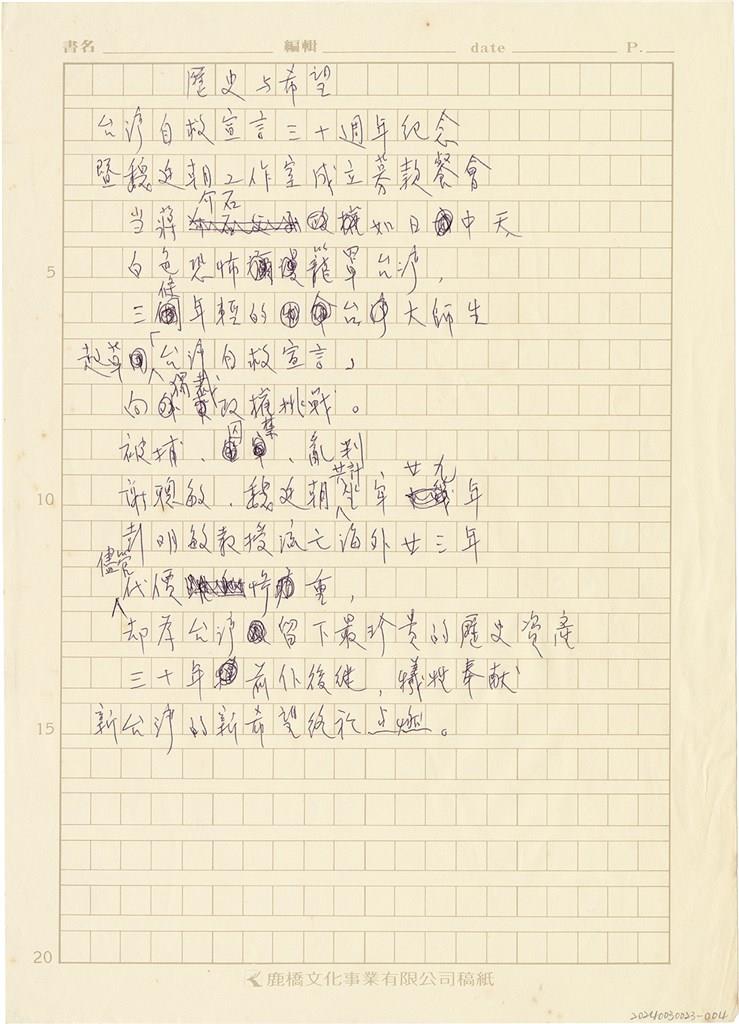 書名 編輯 date P.
歷史与希望
台湾自救宣言三十週年紀念
暨魏廷朝工作室成立募款餐會
当蔣介石政權如日中天
白色恐怖籠罩台湾，
三位年輕的台湾大師生
起草「台湾自救宣言」
向獨裁政權挑戰。
被捕、囚禁、亂判
謝聰敏、魏廷朝共計坐牢廿九年
彭明敏教授流亡海外廿三年
儘管代價慘重，
却為台湾留下最珍貴的歷史資產
三十年前仆後继，犧牲奉献
新台湾的新希望终於点燃。
5
10
15
20
鹿橋文化事業有限公司稿紙
20240030023-004